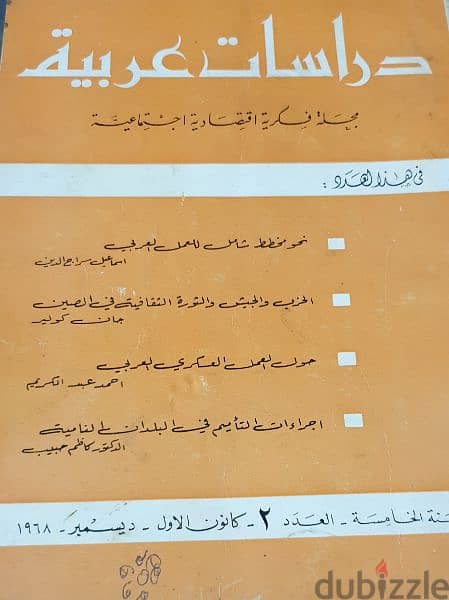 دراسات عربية
مجلة فكرية اقتصادية اجتماعية
في هذا العدد :
نحو مخطط شامل للعمل العربي
اسماعيل سراج الدين
الحزب والجيش والثورة الثقافية في الصين
جان كولير
حول العمل العسكري العربي
احمد عبد الكريم
اجراءات التأميم في البلدان النامية
الدكتور كاظم حبيب
سنة الخامسة - العدد ٢ - كانون الاول - ديسمبر - ١٩٦٨
dubizzle